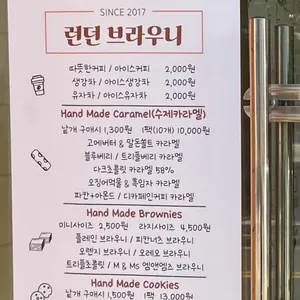 SINCE 2017
런던 브라우니
따뜻한커피 / 아이스커피 2,000원
생강차 / 아이스생강차 2,000원
유자차 / 아이스유자차 2,000원
Hand Made Caramel(수제카라멜)
낱개 구매시 1,300원 1팩(10개) 10,000원
고메버터 & 말돈쏠트 카라멜
블루베리 / 트리플베리 카라멜
다크초콜릿 카라멜 58%
오징어먹물 & 흑임자 카라멜
피칸+아몬드 / 디카페인커피 카라멜
Hand Made Brownies
미니사이즈 2,500원 라지사이즈 4,500원
플레인 브라우니 / 피칸너츠 브라우니
오렌지 브라우니 / 오레오 브라우니
트리플초콜릿 / M & Ms 엠앤엠즈 브라우니
Hand Made Cookies
낱개 구매시 1,500원 1팩 13,000원